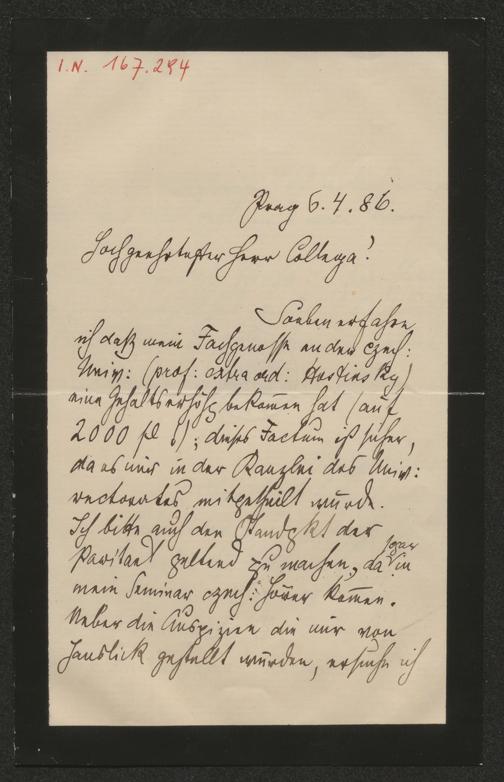 I.N. 167.294
Prag 6.4.86.
Hochgeehrtester Herr Collega!
Soeben erfahre
ich daß mein Fachgenosse an der czech:
Univ: (prof: extraord: Hostinsky)
eine Gehaltserhöhg bekommen hat (auf
2000 fl ); dieses Factum ist sicher,
da es mir in der Kanzlei des Univ:
rectorates mitgetheilt wurde.
Ich bitte auch den Standpkt der
Parität geltend zu machen, da sogar in
mein Seminar czech: Hörer kommen.
Ueber die Auspizien die mir von
Hanslick gestellt wurden, ersuche ich